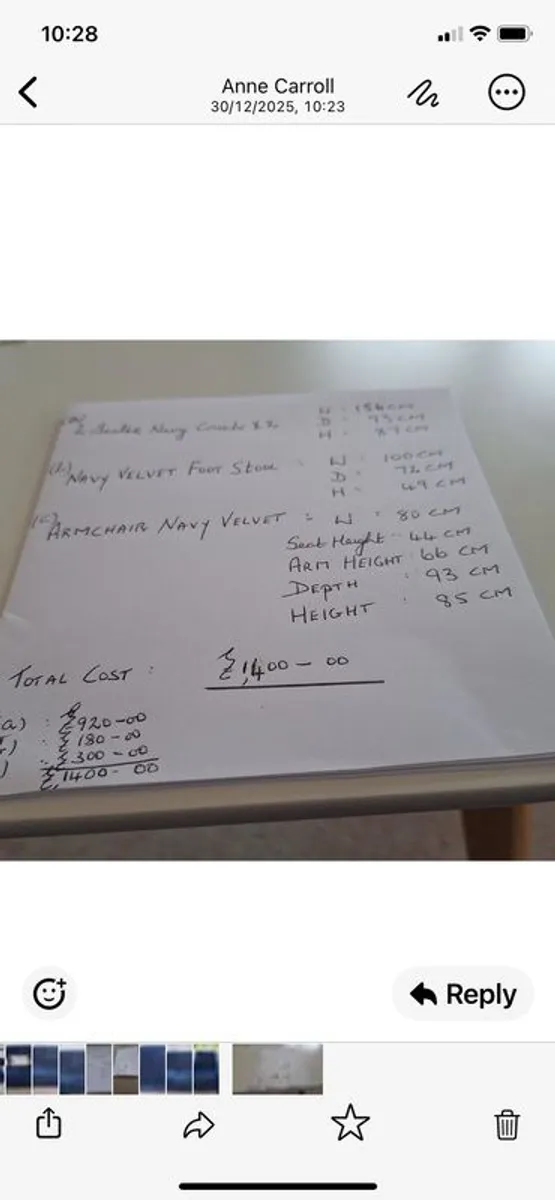 10:28
Anne Carroll
30/12/2025, 10:23
(a) 2 Seater Navy Couch X 2 W : 156 CM
D : 93 CM
H : 87 CM
(b) NAVY VELVET FOOT STOOL : W : 100 CM
D :
H : 49 CM
(c) ARMCHAIR NAVY VELVET : W : 80 CM
Seat Height - 44 CM
ARM HEIGHT 66 CM
DEPTH : 93 CM
HEIGHT : 85 CM
TOTAL COST : £1,400 - 00
a) : £920-00
) : £180-00
) : £300-00
£1400-00
Reply